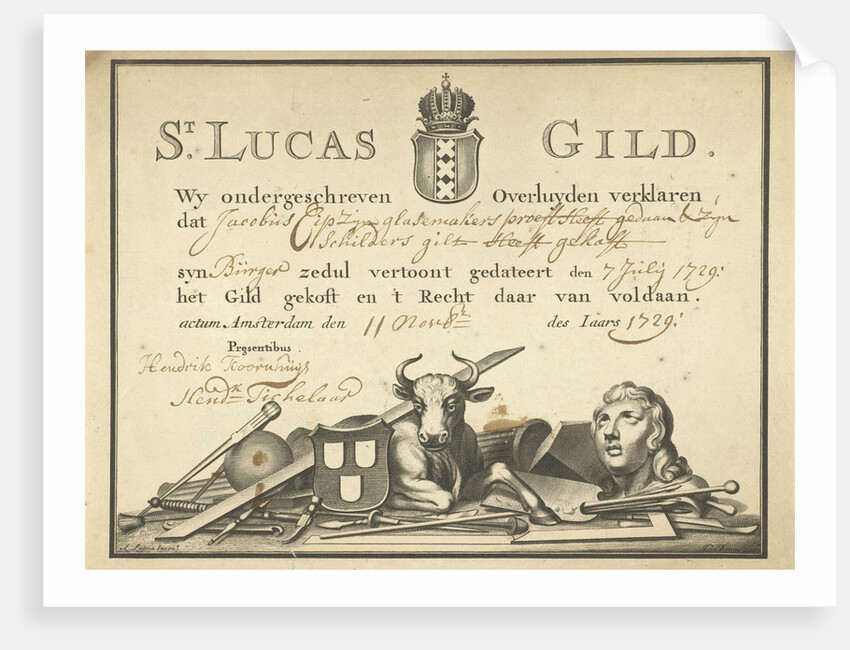 ST. LUCAS GILD.
Wy ondergeschreven Overluyden verklaren
dat Jacobüs glasemakers proeft Heeft gedaan & zyn
Schilders gilt Heeft gekoft
syn Bürger zedul vertoont gedateert den 7 Julÿ 1729:
het Gild gekoft en 't Recht daar van voldaan.
actum Amsterdam den 11 Novbr des Iaars 1729:
Presentibus.
Hendrik
Hendk Tichelaar